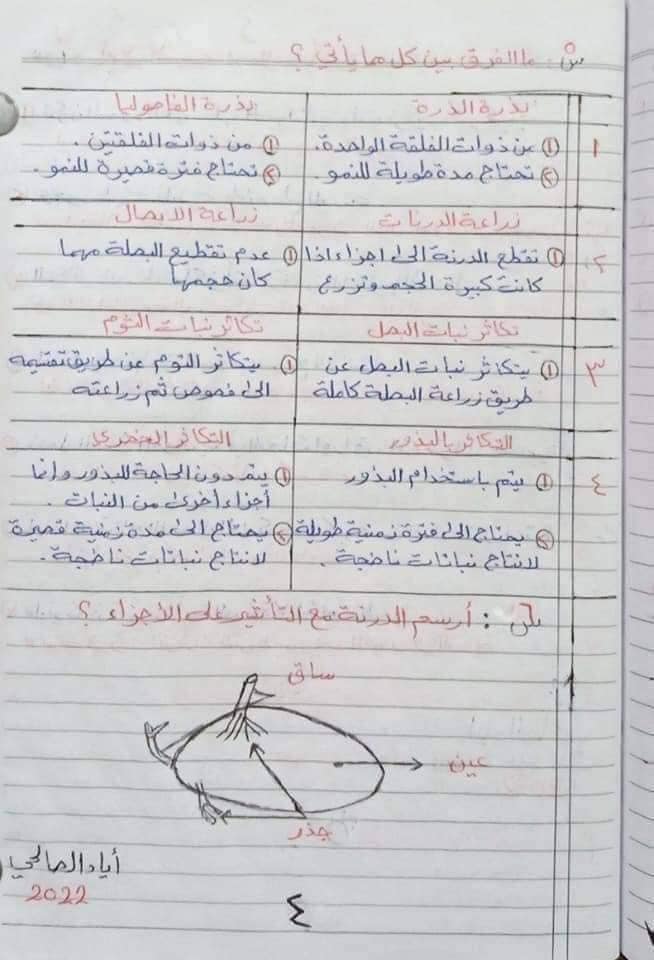 س٥: ما الفرق بين كل مما يأتي ؟
بذرة الذرة
بذرة الفاصوليا
١
① من ذوات الفلقة الواحدة.
② تحتاج مدة طويلة للنمو.
① من ذوات الفلقتين.
② تحتاج فترة قصيرة للنمو.
زراعة الدرنات
زراعة الابصال
٢
① تقطع الدرنة الى اجزاء اذا
كانت كبيرة الحجم وتزرع
① عدم تقطيع البصلة مهما
كان حجمها
تكاثر نبات البصل
تكاثر نبات الثوم
٣
① يتكاثر نبات البصل عن
طريق زراعة البصلة كاملة
① يتكاثر الثوم عن طريق تقسيمه
الى فصوص ثم زراعته
التكاثر بالبذور
التكاثر الخضري
٤
① يتم باستخدام البذور
② يحتاج الى فترة زمنية طويلة
لانتاج نباتات ناضجة .
① يتم دون الحاجة للبذور وانما
أجزاء أخرى من النبات .
② يحتاج الى مدة زمنية قصيرة
لانتاج نباتات ناضجة .
س٦ : أرسم الدرنة مع التأشير على الأجزاء ؟
ساق
عين
جذر
أياد الصالحي
2022
٤